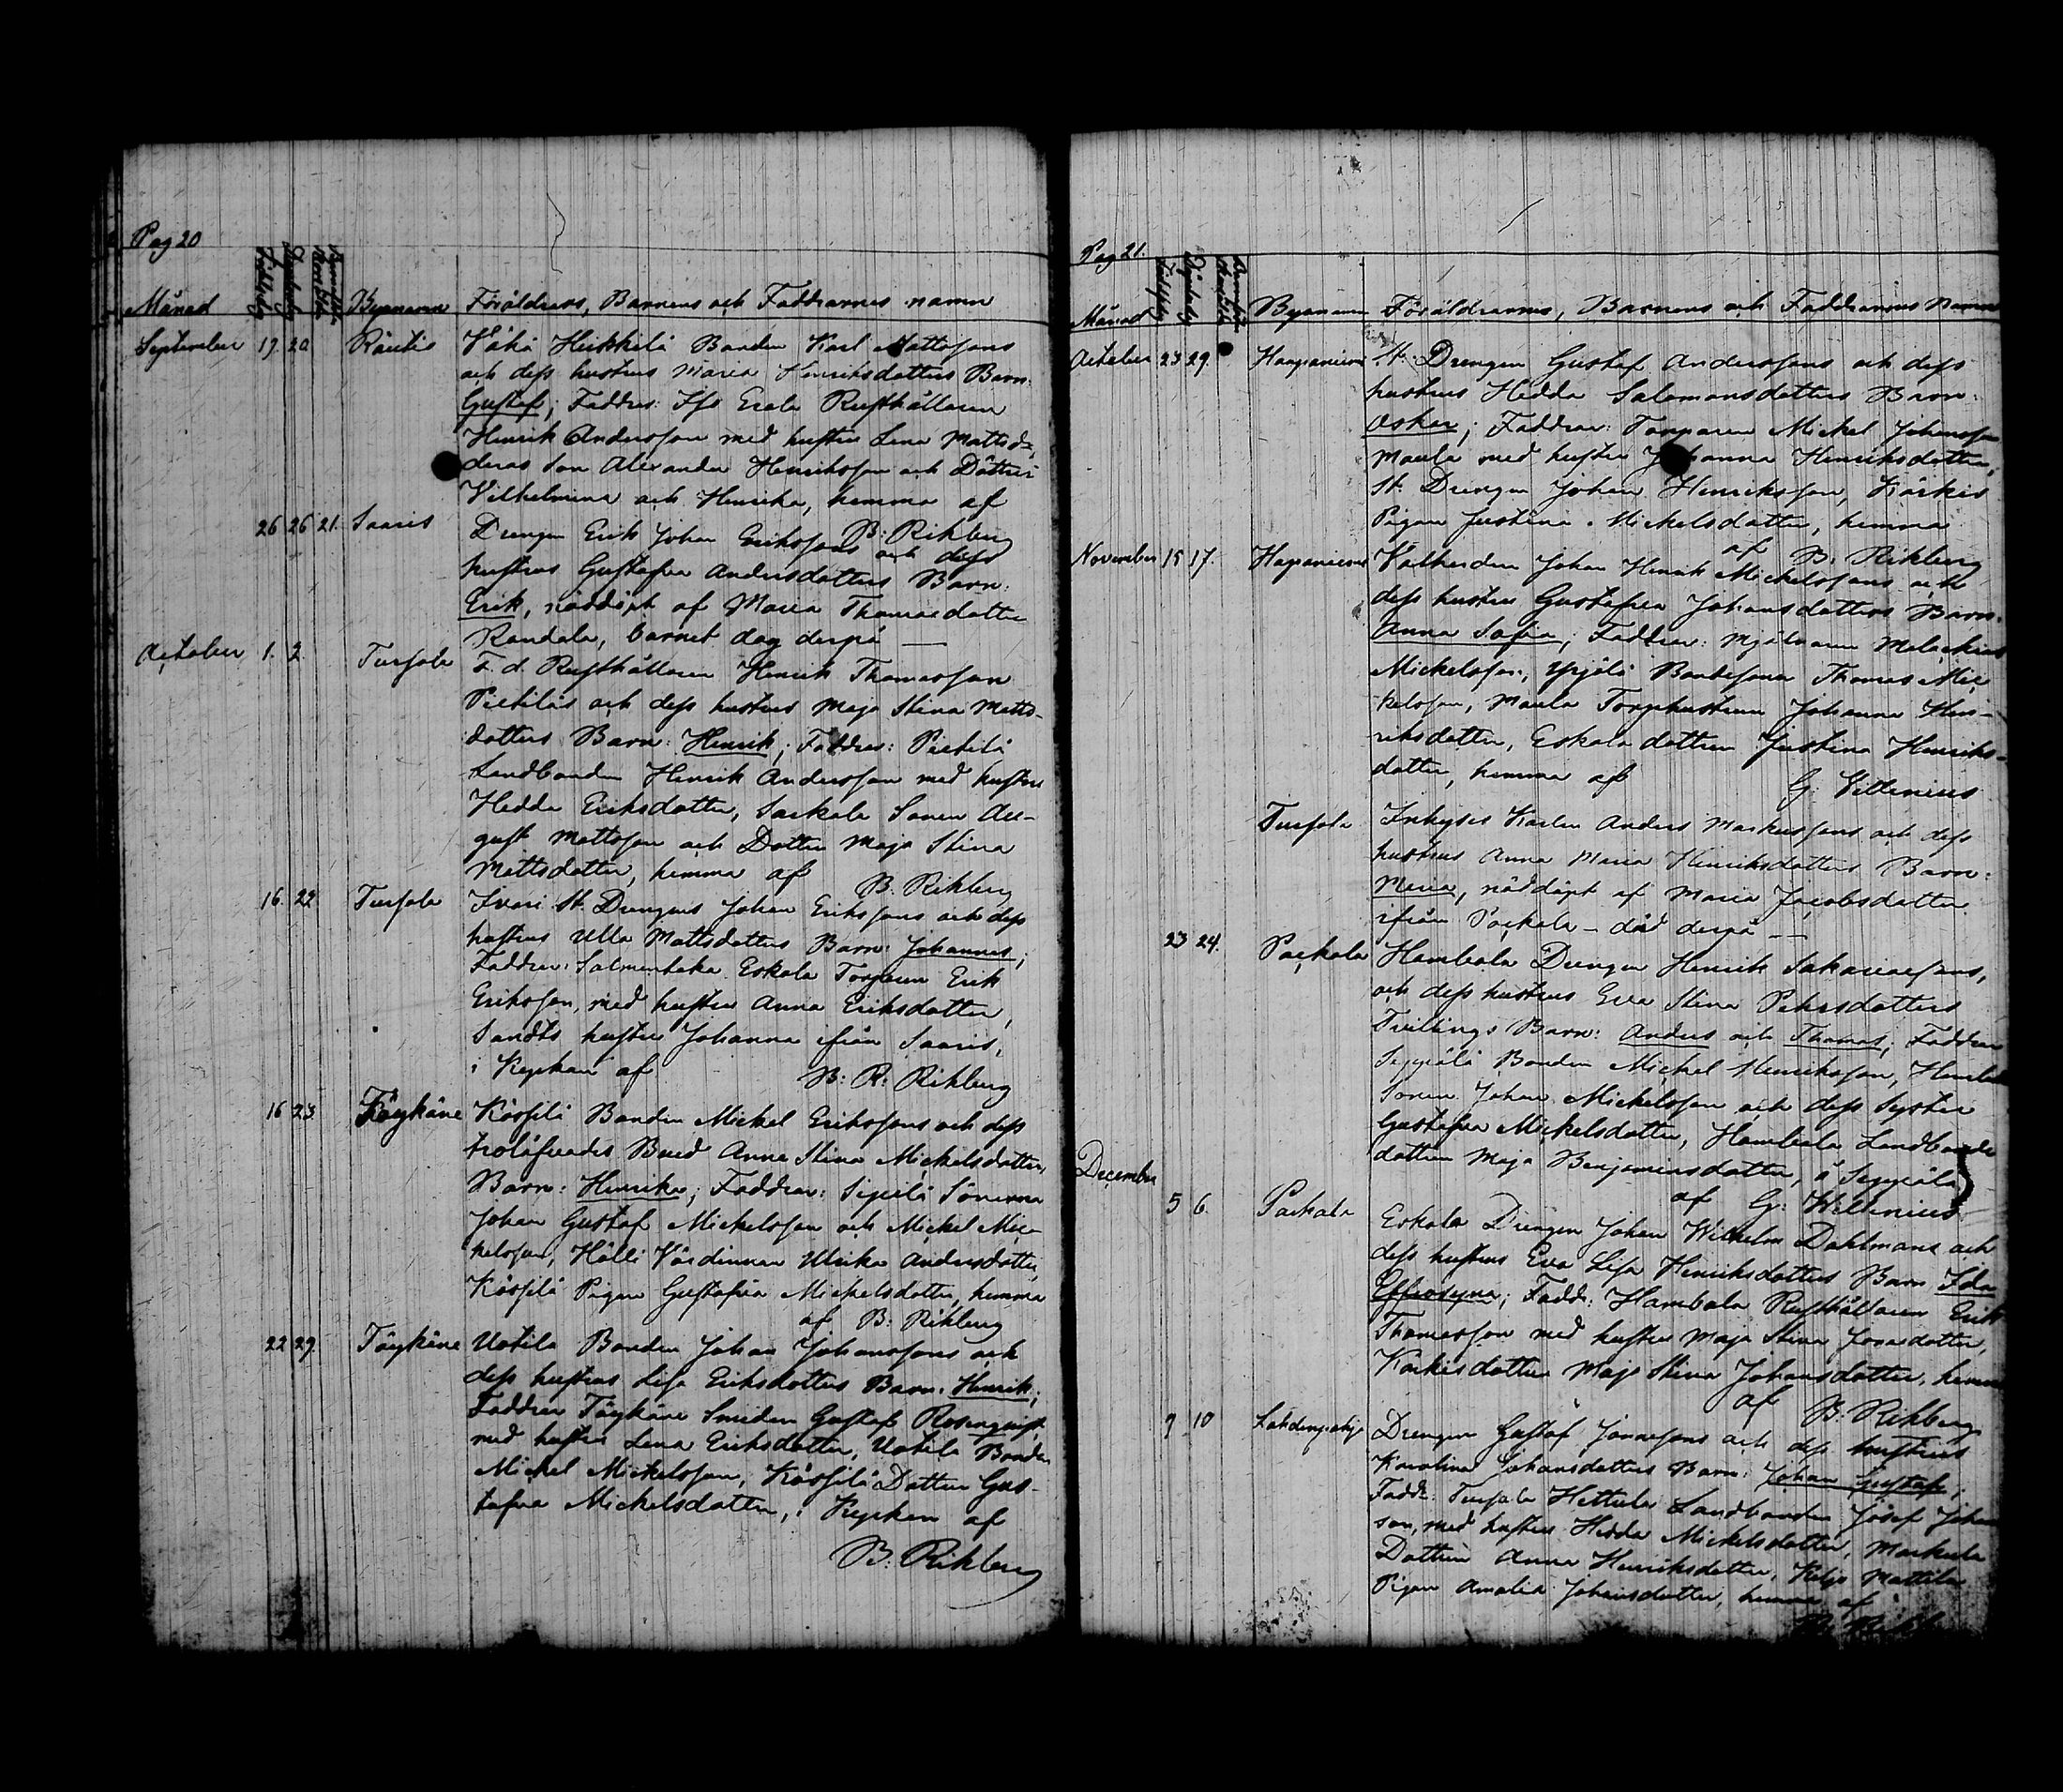 Pag 20
Månad Bynamn Föräldrars, Barnens och Faddrarnes namn
September 17. 20. Räutis Vähä Heikkilä Bonden Karl Mattssons
och dess hustrus Maria Henriksdotters Barn:
Gustaf; Faddrar: Iso Erola Rusthållaren
Henrik Andersson med hustru Lena Mattsd:
deras son Alexander Henriksson och Döttrar
Vilhelmina och Henrika, hemma af
B: Rikberg
26 26 21. Saaris Drengen Erik Johan Erikssons och dess
hustrus Gustafva Andersdotters Barn:
Erik, nöddöpt af Maria Thomasdotter
Randala, barnet dog derpå —
October 1. 2. Tursola F. d. Rusthållaren Henrik Thomasson
Pietiläs och dess hustrus Maja Stina Matts-
dotters Barn: Henrik; Faddrar: Pietilä
Landbonden Henrik Andersson med hustru
Hedda Eriksdotter, Sarkola Sonen Au-
gust Mattsson och Dotter Maja Stina
Mattsdotter, hemma af B. Rikberg
16. 22 Tursola Ivari St. Drengens Johan Erikssons och dess
hustrus Ulla Mattsdotters Barn: Johannes;
Faddrar: Salmentaka Eskola Torparen Erik
Eriksson, med hustru Anna Eriksdotter,
Sandts hustru Johanna ifrån Saaris,
i Kyrkan af B: R: Rikberg
16 23. Töykäne Körsilä Bonden Mickel Erikssons och dess
trolåfvades Brud Anna Stina Mickelsdotter,
Barn: Henrika; Faddrar: Sipilä Sönerna
Johan Gustaf Mickelsson och Mickel Mic-
kelsson, Hölli Värdinnan Ulrika Andersdotter,
Körsilä Pigan Gustafva Mickelsdotter, hemma
af B: Rikberg
22 29. Töykäne Uotila Bonden Johan Johanssons och
dess hustrus Lisa Eriksdotters Barn: Henrik;
Faddrar Töykäne Smeden Gustaf Rosenqvist,
med hustru Lena Eriksdotter, Uotila Bonden
Mickel Mickelsson, Körsilä Dotter Gus-
tafva Mickelsdotter, i Kyrkan af
B: Rikberg
Pag 21.
Månad Bynamn Föräldrarnes, Barnens och Faddrarnes Namn
October 23 29. Haapaniemi St. Drengen Gustaf Anderssons och dess
hustrus Hedda Salomonsdotters Barn:
Oskar; Faddrar: Torparen Mickel Johansson
Maula med hustru Johanna Henriksdotter,
St. Drengen Johan Henriksson, Kärkis
Pigan Justina Mickelsdotter, hemma
af B: Rikberg
November 15 17. Hapaniemi Johan Henrik Mickelssons och
dess hustrus Gustafva Johansdotters Barn:
Anna Sofia; Faddrar: Mjölnaren Malackias
Mickelsson, Yrjölä Bondesonen Thomas Mic-
kelsson, Maula Torphustrun Johanna Hen-
riksdotter, Eskola dottren Justina Henriks-
dotter, hemma af G: Villenius
Tursola Inhyses Karlen Anders Markussons och dess
hustrus Anna Maria Henriksdotters Barn:
Maria, nöddöpt af Maria Jacobsdotter
ifrån Packala — död derpå —
23 24. Packala Hambola Drengen Henrik Sakariassons,
och dess hustrus Eva Stina Pehrsdotters
Tvillings Barn: Anders och Thomas; Faddrar
Seppälä Bonden Mickel Henriksson,
Sonen Johan Mickelsson och dess Syster
Gustafva Mickelsdotter, Hambola Landbonde
dottren Maja Benjaminsdotter, å Seppälä
af G: Willenius
December
5 6. Packala Eskola Drengen Johan Wilhelm Dahlmans och
dess hustrus Eva Lisa Henriksdotters Barn Ida
Effrosyna; Fadd: Hambola Rusthållaren Erik
Thomasson med hustru Maja Stina Jonasdotter,
Karkis dotter Maja Stina Johansdotter, hemma
af B: Rikberg
9 10 Lahdenpohja Drengen Gustaf Jonassons och dess hustrus
Karolina Johansdotters Barn: Johan Gustaf;
Fadd: Tursola Hettula Landbonden Josef Johans
son, med hustru Hedda Mickelsdotter, Markula
Dottren Anna Henriksdotter, Mattila
Pigan Amalia Johansdotter, hemma af